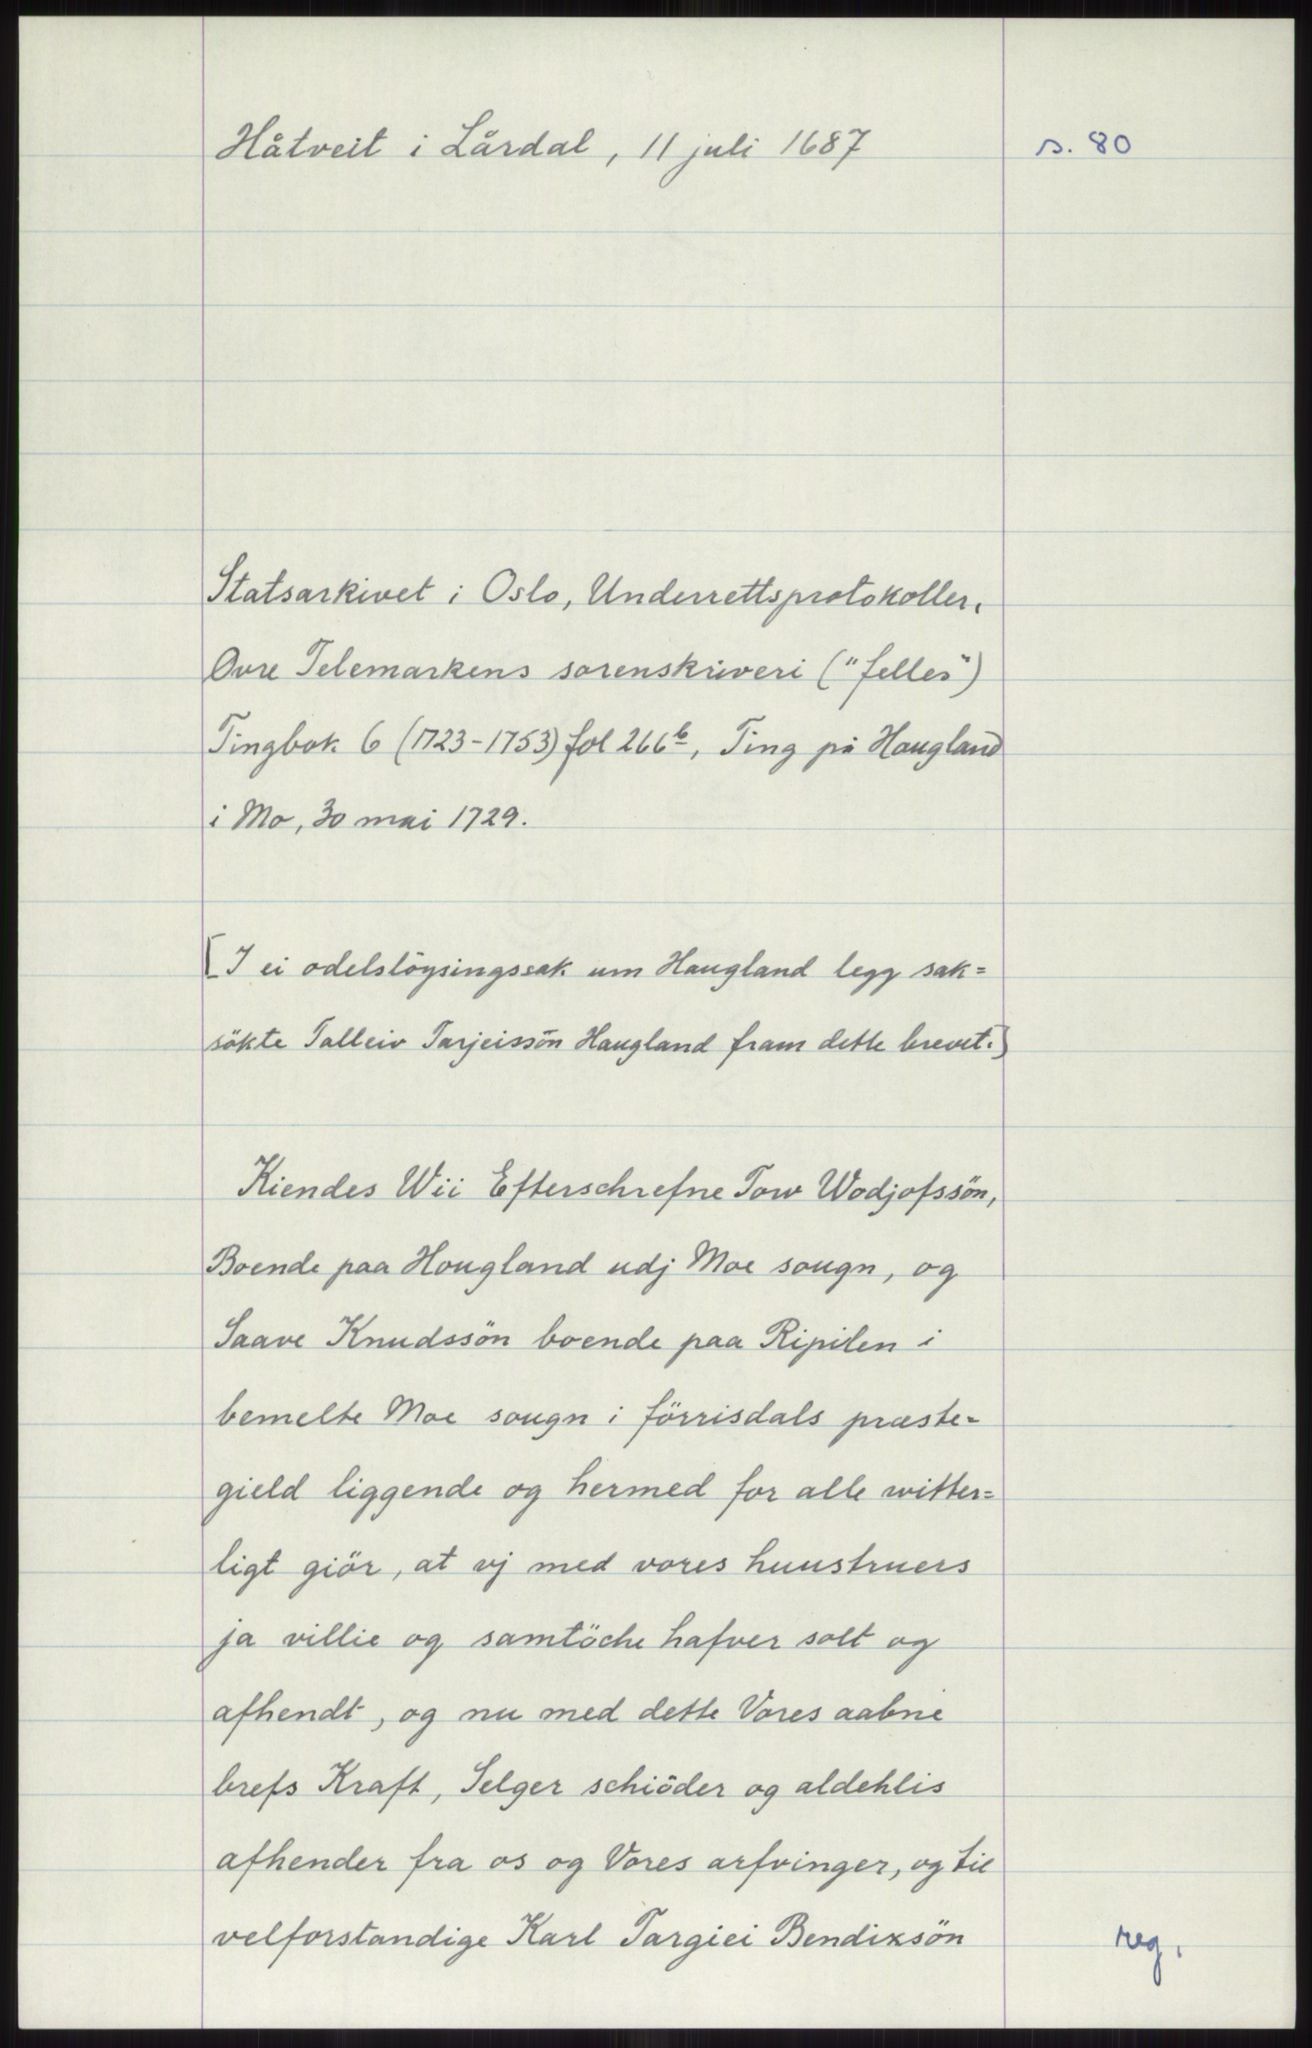 Håtveit i Lårdal, 11 juli 1687
s. 80
Statsarkivet i Oslo, Underrettsprotokoller,
Øvre Telemarkens sorenskriveri ("felles")
Tingbok 6 (1723-1753) fol 266b, Ting på Haugland
i Mo, 30 mai 1729.
[I ei odelslöysingssak um Haugland legg sak=
sökte Talleiv Tarjeissön Haugland fram dette brevet.]
Kiendes Wii Efterschrefne Tow Wodjofssön,
Boende paa Hougland udj Moe sougn, og
Saave Knudssön boende paa Ripilen i
bemelte Moe sougn i förrisdals præste-
gield liggende og hermed for alle witter=
ligt giör, at vj med vores huustruers
ja villie og samtöche hafver solt og
afhendt, og nu med dette Vores aabne
brefs Kraft, Selger schiöder og aldehlis
afhender fra os og Vores arfvinger, og til
velforstandige Karl Targiei Bendixsön
reg.